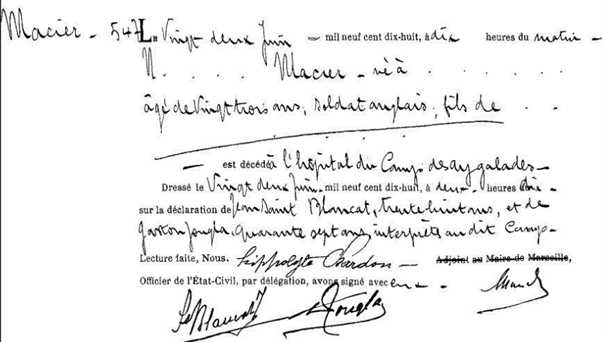 Macier – 547 Le Vingt deux Juin – mil neuf cent dix-huit, à dix heures du matin –
N. . . . . Macier – né à . . . . . .
âgé de Vingt trois ans, soldat anglais, fils de . .
– est décédé à l'hôpital du Camp des aygalades –
Dressé le Vingt deux Juin. mil neuf cent dix-huit, à deux heures
sur la déclaration de Jean Saint Blancat, trente huit ans, et de
Gaston Jougla, quarante sept ans, interprète audit Camp –
Lecture faite, Nous. Hippolyte Chardon – Adjoint au Maire de Marseille,
Officier de l'État-Civil, par délégation, avons signé avec eux –
St Blancat Jougla